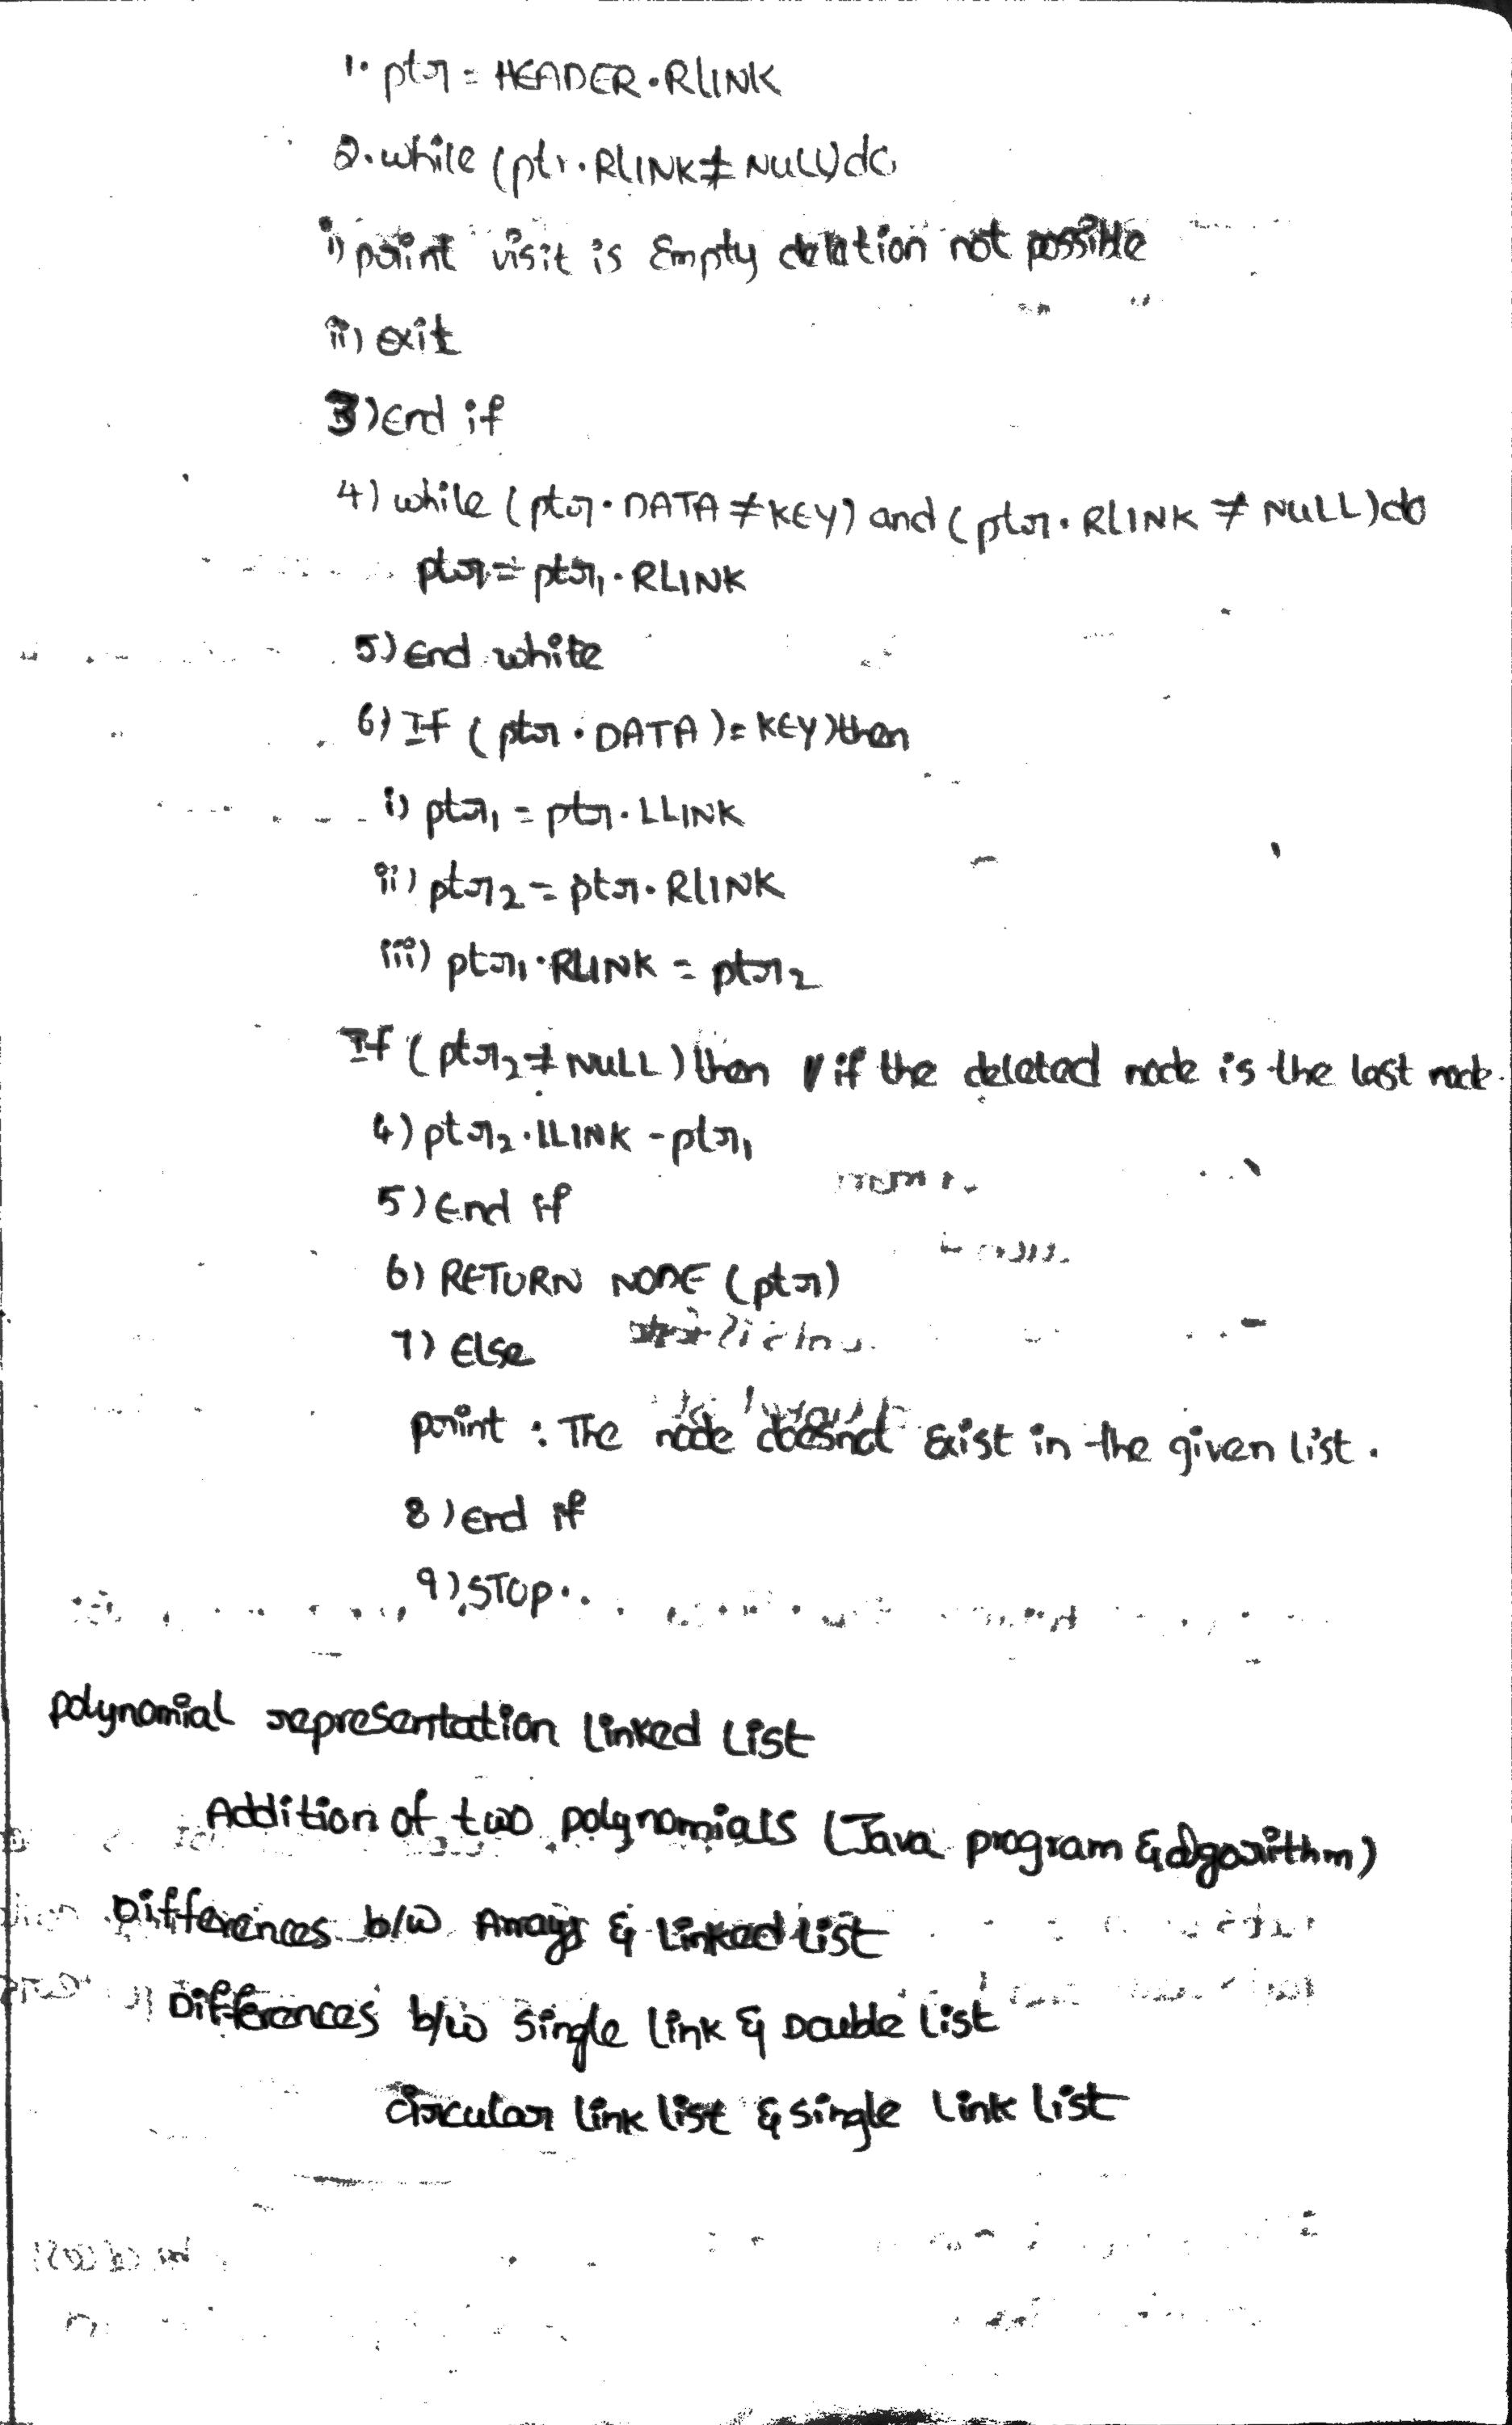 1. ptr = HEADER.RLINK
2. while (ptr.RLINK ≠ NULL) do
i) print visit is Empty deletion not possible
ii) exit
3) End if
4) while (ptr.DATA ≠ KEY) and (ptr.RLINK ≠ NULL) do
ptr = ptr1.RLINK
5) End while
6) If (ptr.DATA) = KEY) then
i) ptr1 = ptr.LLINK
ii) ptr2 = ptr.RLINK
iii) ptr1.RLINK = ptr2
If (ptr2 ≠ NULL) then if the deleted node is the last node.
4) ptr2.LLINK - ptr1
5) End if
6) RETURN NODE (ptr)
7) Else
print : The node doesnot Exist in the given list.
8) End if
9) STOP.
polynomial representation linked list
Addition of two polynomials (Java program & algorithm)
Differences b/w Arrays & Linked list
Differences b/w single link & Double list
circular link list & single link list